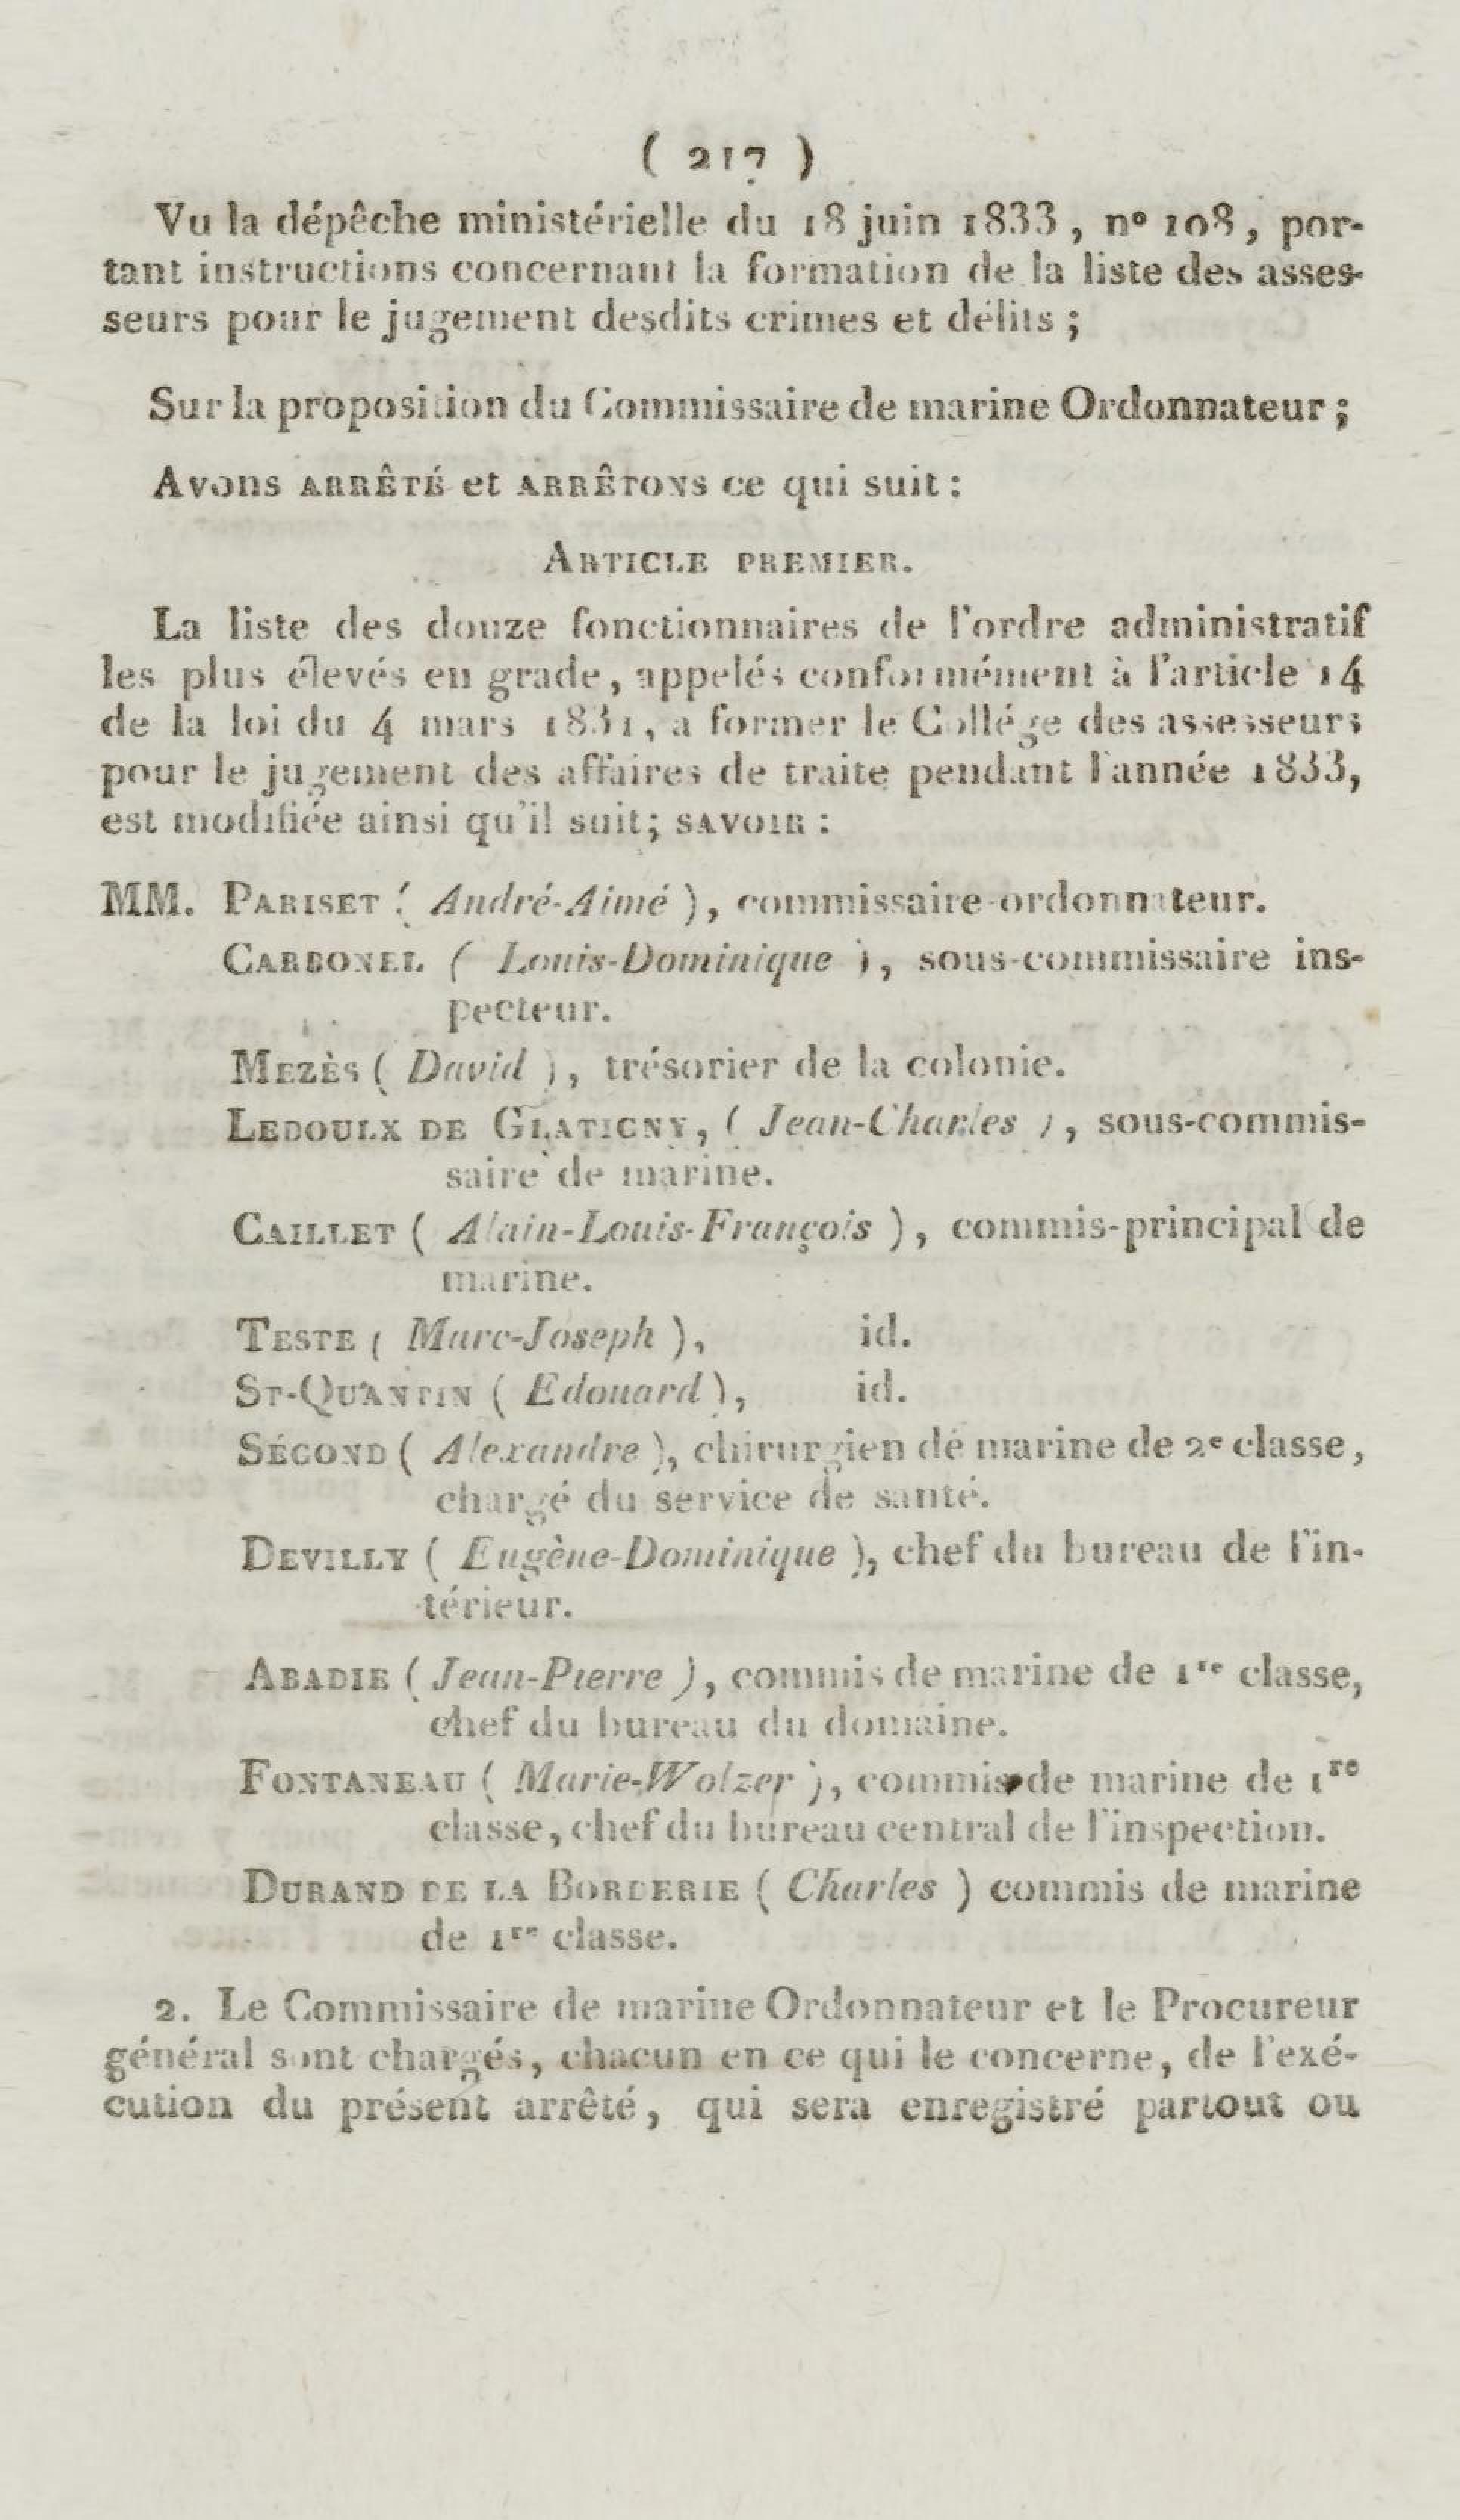 ( 217 )
Vu la dépêche ministérielle du 18 juin 1833, n° 108, por-
tant instructions concernant la formation de la liste des asses-
seurs pour le jugement desdits crimes et délits ;
Sur la proposition du Commissaire de marine Ordonnateur ;
Avons ARRÊTÉ et ARRÊTONS ce qui suit :
ARTICLE PREMIER.
La liste des douze fonctionnaires de l'ordre administratif
les plus élevés en grade, appelés conformément à l'article 14
de la loi du 4 mars 1831, a former le Collége des assesseurs
pour le jugement des affaires de traite pendant l'année 1833,
est modifiée ainsi qu'il suit; SAVOIR :
MM. PARISET ( André-Aimé ), commissaire-ordonnateur.
CARBONEL ( Louis-Dominique ), sous-commissaire ins-
pecteur.
MEZÈS ( David ), trésorier de la colonie.
LEDOULX DE GLATIGNY, ( Jean-Charles ), sous-commis-
saire de marine.
CAILLET ( Alain-Louis-François ), commis-principal de
marine.
TESTE ( Marc-Joseph ), id.
ST-QUANTIN ( Edouard ), id.
SÉCOND ( Alexandre ), chirurgien dé marine de 2e classe,
chargé du service de santé.
DEVILLY ( Eugène-Dominique ), chef du bureau de l'in-
térieur.
ABADIE ( Jean-Pierre ), commis de marine de 1re classe,
chef du bureau du domaine.
FONTANEAU ( Marie-Wolzer ), commis de marine de 1re
classe, chef du bureau central de l'inspection.
DURAND DE LA BORDERIE ( Charles ) commis de marine
de 1re classe.
2. Le Commissaire de marine Ordonnateur et le Procureur
général sont chargés, chacun en ce qui le concerne, de l'exé-
cution du présent arrêté, qui sera enregistré partout ou